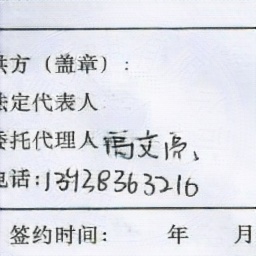 供方（盖章）：
法定代表人
委托代理人
电话:13438363216
签约时间: 年 月